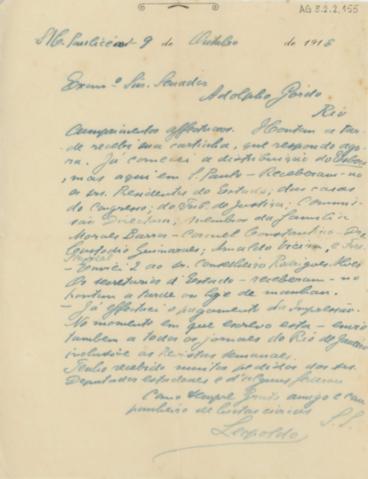 AG 3.2.2.155
9 de Outubro de 1915
Exmº Snr. Senador
Adolpho Gordo
Rio
Cumprimentos affectuosos. Hontem a tar-
de recebi sua cartinha, que respondo ago-
ra. Já comecei a distribuição do
mas aqui em S. Paulo - Receberam-no
os srs. Presidentes do Estado; das casas
do Congresso; do Trib. de Justiça; Commis-
são Directora; membros da familia
Moraes Barros - Coronel Constantino - Dr.
Custodio Guimarães; Arnaldo
- Enviei 2 ao sr. Conselheiro Rodrigues Alves
Os secretarios d'Estado - receberam-no
hontem a tarde ou hoje de manhan.
- Já effectuei o pagamento da impressão.
No momento em que escrevo esta - envio
tambem a todos os jornaes do Rio de Janeiro
inclusive as Revistas semanaes.
Tenho recebido muitos pedidos dos srs.
Deputados estadoaes e d'alguns
Como sempre Grato amigo e com-
panheiro de lutas civicas
Leopoldo